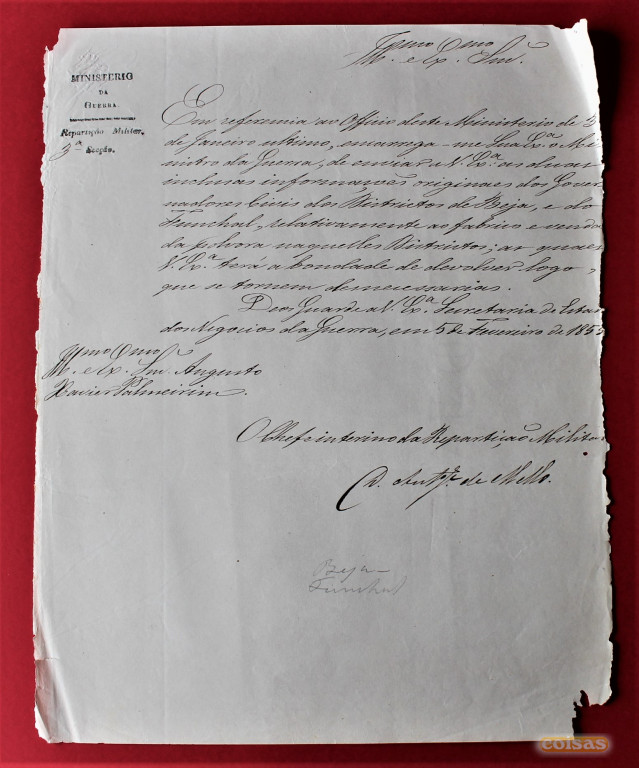 MINISTERIO
DA
GUERRA
Repartição Militar.
3ª Secção.
Illmo e Exmo Snr.
Em referencia ao Officio deste Ministerio de 3
de Janeiro ultimo, encarrega-me Sua Exª o Mi-
nistro da Guerra, de enviar a V. Exª as duas
inclusas informações originaes dos Gover-
nadores Civis dos Districtos de Beja, e do
Funchal, relativamente ao fabrico e venda
da polvora naquelles Districtos; as quaes
V. Exª terá a bondade de devolver logo
que se tornem desnecessarias.
Deos Guarde a V. Exª Secretaria de Esta
dos Negocios da Guerra, em 5 de Fevereiro de
Illmo e Exmo Snr. Augusto
Xavier Palmeirim.
O Chefe interino da Repartição Milita
D. Antº de Mello.
Beja
Funchal
coisas